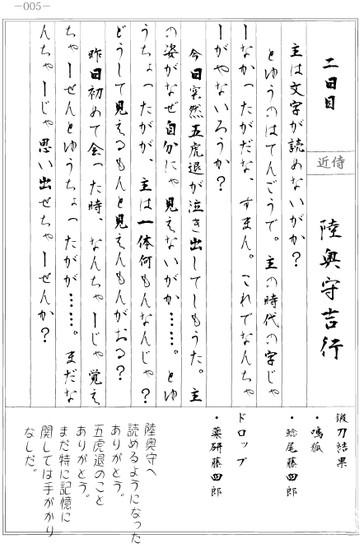 —005—
二日目
近侍
陸奥守吉行
主は文字が読めないがか?
とゆうのはてんごうで。主の時代の字じゃ
ーなかったがだな、すまん。これでなんちゃ
ーがやないろうか?
今日突然五虎退が泣き出してしもうた。主
の姿がなぜ自分にゃ見えないがか……。とゆ
うちょったがが、主は一体何もんなんじゃ?
どうして見えるもんと見えんもんがおる?
昨日初めて会った時、なんちゃーじゃ覚え
ちゃーせんとゆうちょったがが……。まだな
んちゃーじゃ思い出せちゃーせんか?
鍛刀結果
・鳴狐
・鯰尾藤四郎
ドロップ
・薬研藤四郎
陸奥守へ
読めるようになった
ありがとう。
五虎退のこと
ありがとう。
まだ特に記憶に
関しては手がかり
なしだ。